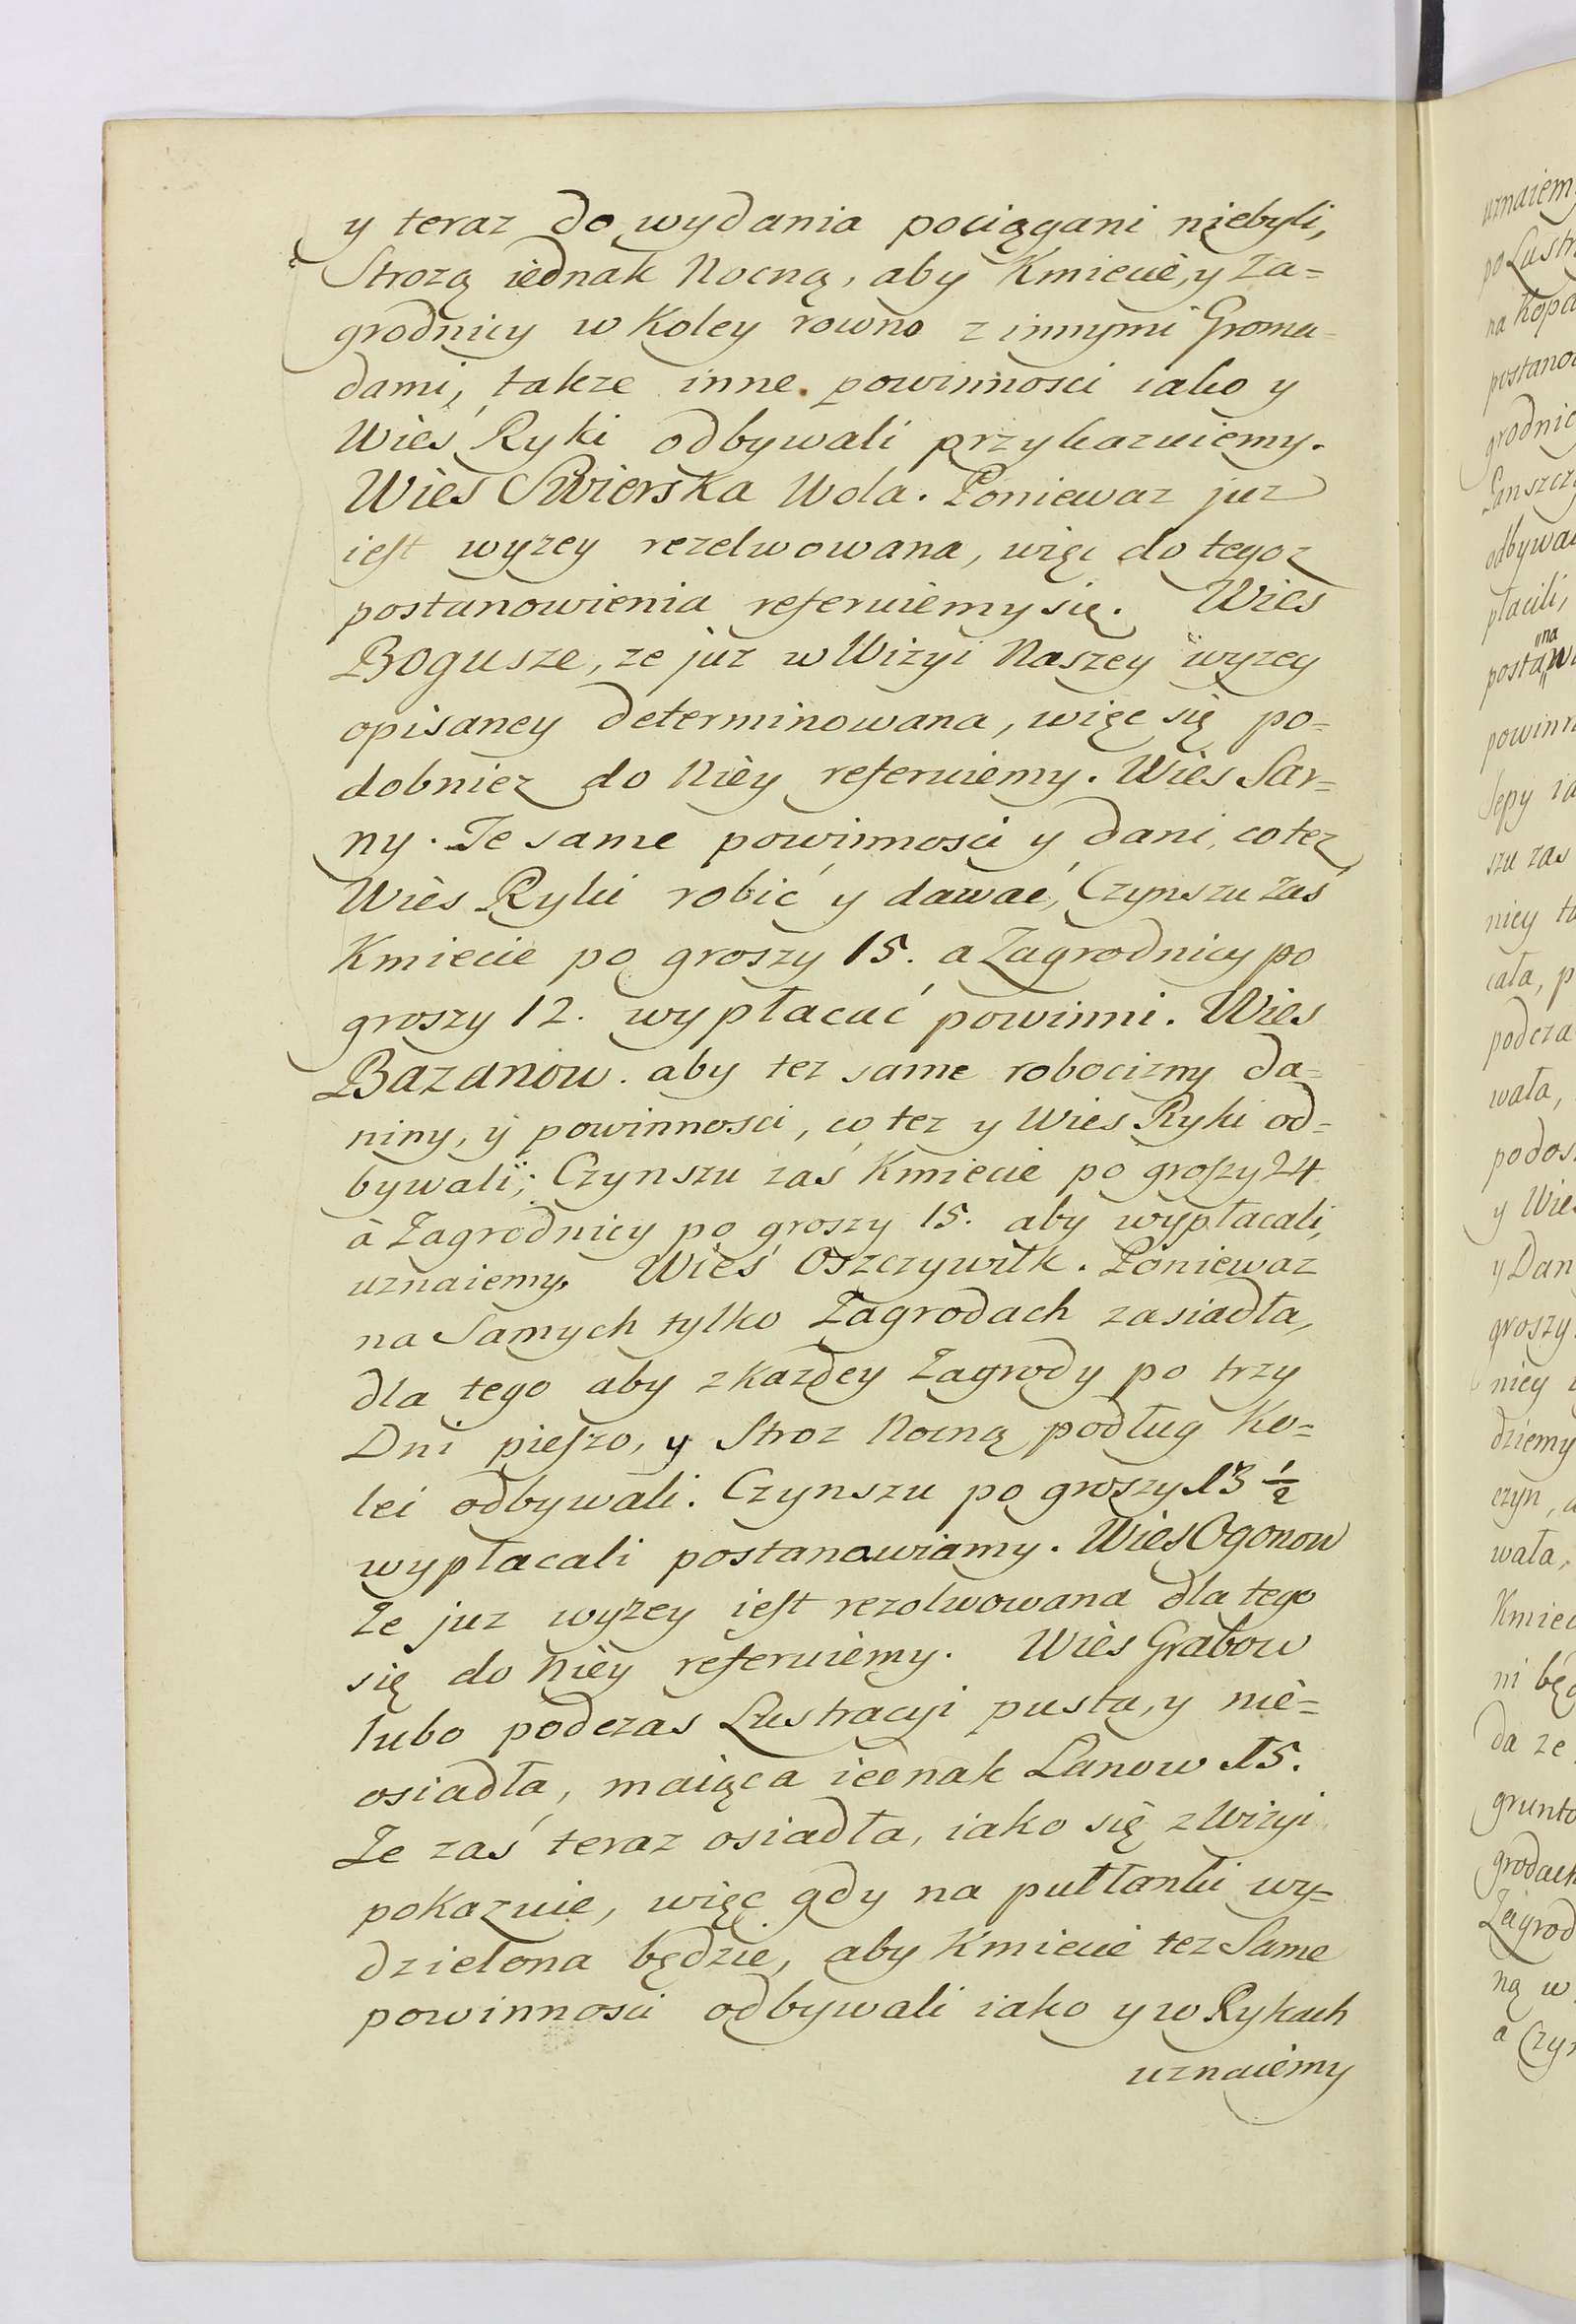 y teraz do wydania pociągani niebyli,
Strozą iednak Nocną, aby Kmiecie, y Za=
grodnicy w Koley rowno z innymi Groma=
dami, takze inne powinnosci iako y
Wieś Ryki odbywali przykazuiemy.
Wies Swierska Wola. Poniewaz juz
iest wyzey rezelwowana, więc do tegoz
postanowienia referuiemy się. Wies
Bogusze, ze juz w Wizyi Naszey wyzey
opisaney determinowana, więc się po=
dobniez do Niey referuiemy. Wies Sar=
ny. Te same powinnosci y dani, co tez
Wies Ryki robić y dawać, Czynszu zaś
Kmiecie po groszy 15. a Zagrodnicy po
groszy 12. wypłacać powinni. Wies
Bazanow. aby tez same robocizny da=
niny, y powinnosci, co tez y Wies Ryki od=
bywali; Czynszu zaś Kmiecie po groszy 24
à Zagrodnicy po groszy 15. aby wypłacali,
uznaiemy. Wieś Oszczywilk. Poniewaz
na Samych tylko Zagrodach zasiadła,
dla tego aby z Kazdey Zagrody po trzy
Dni pieszo, y Stroz Nocną podług Ko=
lei odbywali. Czynszu po groszy 13 1/2
wypłacali postanawiamy. Wies Ogonow
Ze juz wyzey iest rezolwowana dla tego
się do Niey referuiemy. Wies Grabow
lubo podczas Lustracyi pusta, y nie=
osiadła, maiąca iednak Lanow 15.
Ze zaś teraz osiadła, iako się z Wizyi
pokazuie, więc gdy na pułłanki wy=
dzielona będzie, aby Kmiecie tez Same
powinnosci odbywali iako y w Rykach
uznaiemy
uznaiem
po Lustr
na Kopa
postano
grodnic
Lanszcz
odbywa
płacili,
na
postaw
powinn
Sepy ia
szu zas
nicy ta
cała, p
podcza
wała,
podos
y Wies
y Dan
groszy
nicy
dziemy
czyn, a
wała,
Kmiec
ni będ
da ze
grunto
grodach
Zagrod
ną w
a Czyn